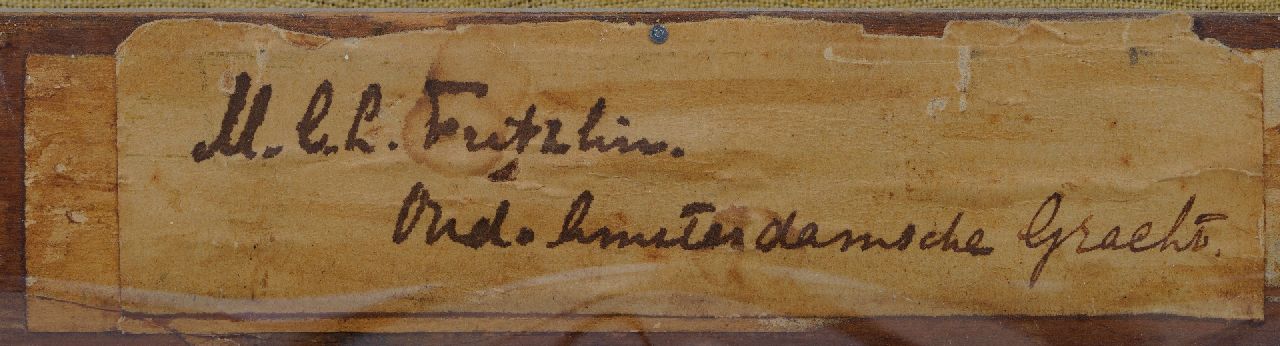 M. C. L. Fritzlin.
Oud. Amsterdamsche Gracht.